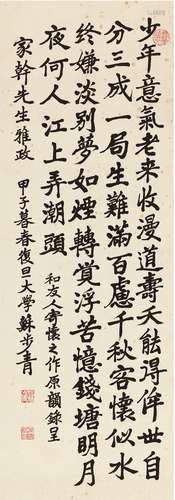 少年意氣老來收漫道壽天能得侔世自
分三成一局生難滿百慮千秋客懷似水
終嫌淡別夢如煙轉覺浮苦憶錢塘明月
夜何人江上弄潮頭
和友人寄懷之作原韻錄呈
家幹先生雅政
甲子暮春復旦大學蘇步青